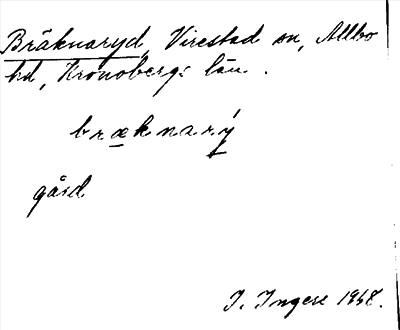 Bräknaryd, Virestad sn, Allbo
hd, Kronobergs län.
bræknarý
gård
I. Ingers 1948.